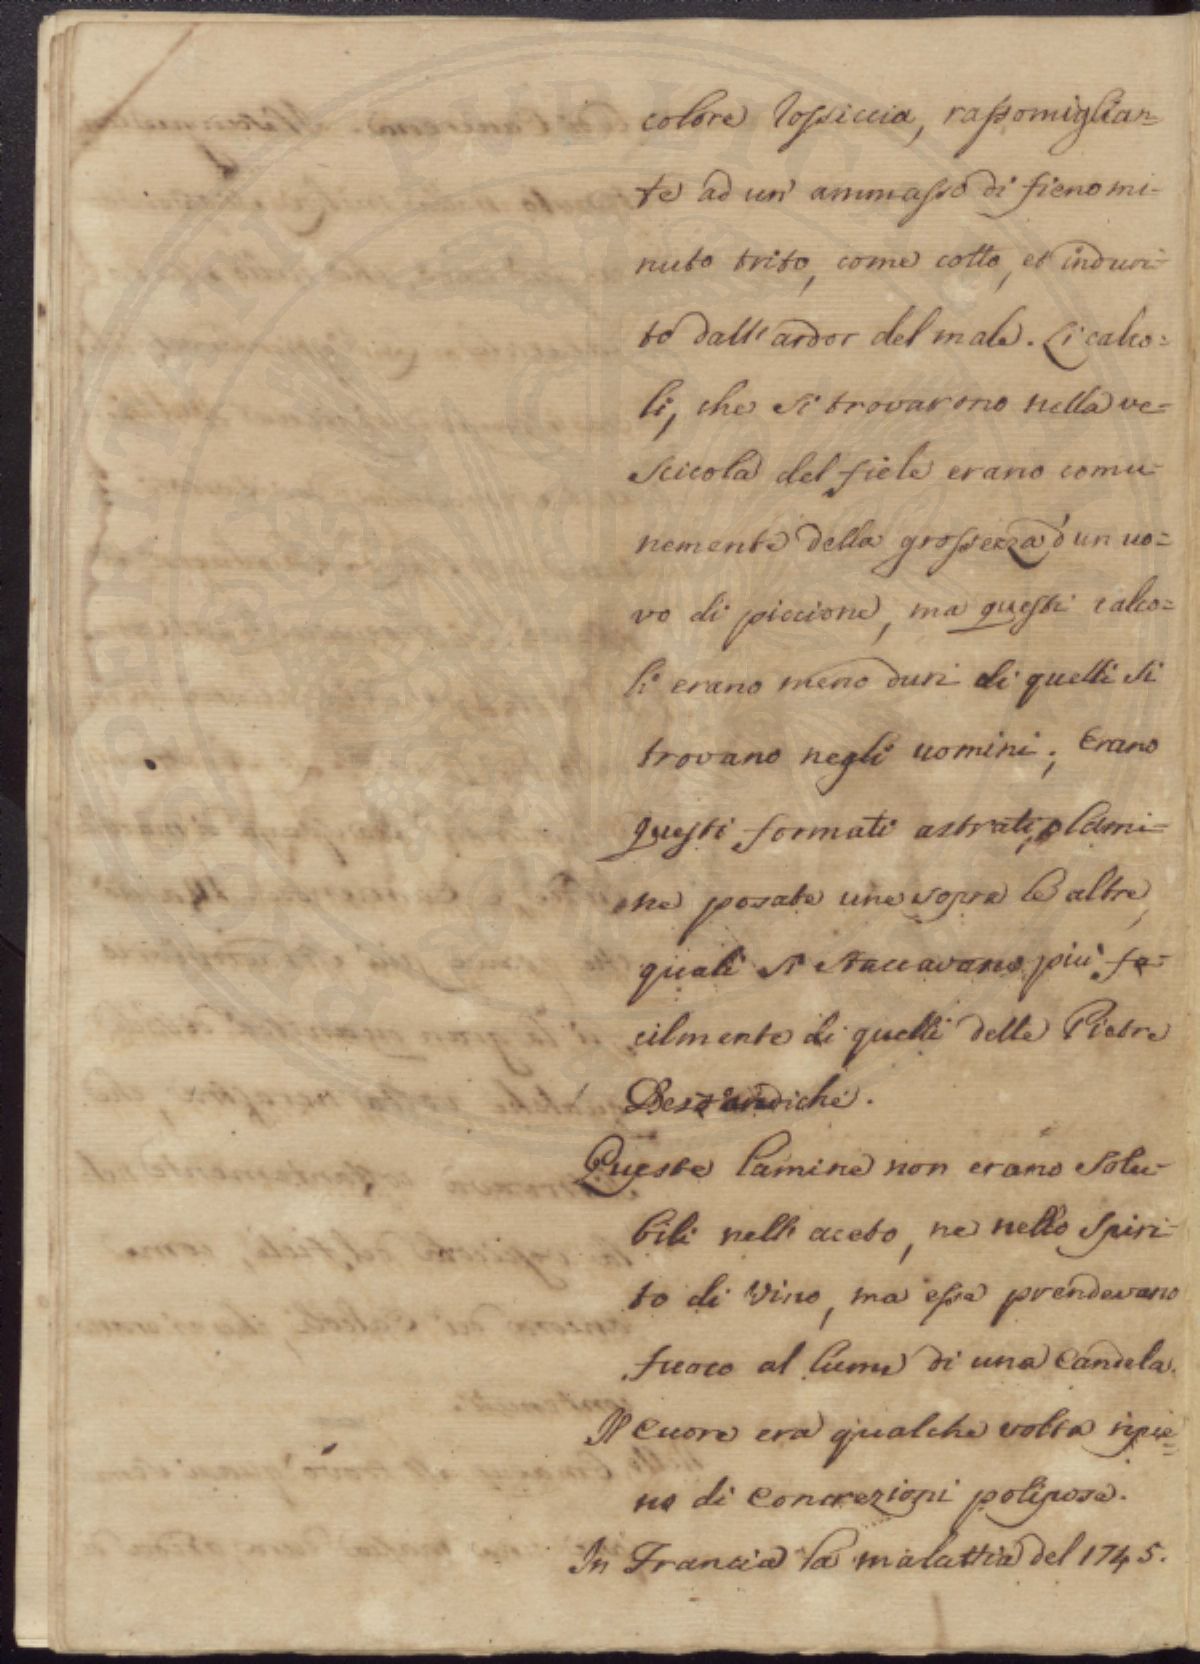 colore rossiccia, rassomiglian=
te ad un' ammasso di fieno mi-
nuto trito, come cotto, et induri-
to dall' ardor del male. Li calco=
li, che si trovarono nella ve=
scicola del fiele erano comu-
nemente della grossezza d'un uo=
vo di piccione, ma questi calco=
li erano meno duri di quelli si
trovano negli uomini; Erano
questi formati a strati, o lami=
ne posate une sopra le altre,
quali si staccavano più fa-
cilmente di quelli delle Pietre
Queste lamine non erano solu-
bili nell' aceto, ne nello Spiri-
to di Vino, ma esse prendevano
fuoco al lume di una Candela.
Il Cuore era qualche volta ripie=
no di Concrezioni polipose.
In Francia la malattia del 1745.